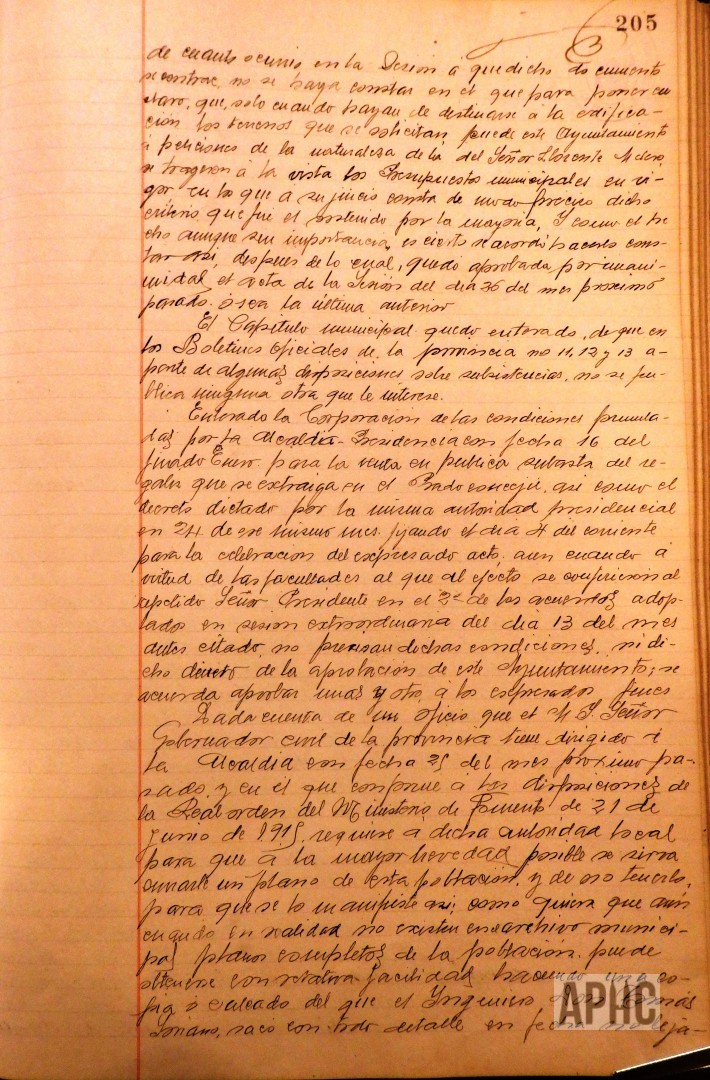 205
de cuanto ocurrió en la Sesion á que dicho documento
se contrae, no se haya constar en el que para poner en
claro, que, solo cuando hayan de destinarse á la edifica-
ción los terrenos que se solicitan puede este Ayuntamiento
peticiones de la naturaleza de la del Señor Llorente
se trageron á la vista los Presupuestos municipales en vi-
gor en lo que á su juicio consta de modo preciso dicho
criterio que fué el sostenido por la mayoria, Y como el he-
cho aunque sin importancia, es cierto se acordó hacerlo cons-
tar así, despues de lo cual, quedó aprobada por unani-
midad el acta de la Sesion del dia 26 del mes proximo
pasado ó sea la última anterior
El Capitulo municipal quedó enterado, de que en
los Boletines Oficiales de la provincia no 11, 12 y 13 a-
parte de algunas disposiciones sobre subsistencias, no se pu-
blica ninguna otra que le interese.
Enterado la Corporación de las condiciones formula-
das por la Alcaldia-Presidencia con fecha 16 del
finado Enero para la venta en publica subasta del re-
galiz que se extraiga en el Prado concejil, asi como el
decreto dictado por la misma autoridad presidencial
en 24 de ese mismo mes fijando el dia 4 del corriente
para la celebracion del expresado acto, aun cuando á
virtud de las facultades al que al efecto se confirieron al
repetido Señor Presidente en el 2º de los acuerdos adop-
tados en sesion extraordinaria del dia 13 del mes
antes citado, no precisan dichas condiciones, ni di-
cho decreto de la aprobación de este Ayuntamiento; se
acuerda aprobar unas y otro, á los expresados fines
Dada cuenta de un oficio que el M. I. Señor
Gobernador civil de la provincia tiene dirigido á
la Alcaldia con fecha 25 del mes proximo pa-
sado, y en el que conforme á las disposiciones de
la Real orden del Ministerio de Fomento de 21 de
Junio de 1915, requiere á dicha autoridad local
para que á la mayor brevedad posible se sirva
enviarle un plano de esta población, y de no tenerlo,
para que se lo manifieste asi; como quiera que aun
cuando en realidad no existen en archivo munici-
pal planos completos de la población, puede
obtenerse con relativa facilidad haciendo una co-
pia ó calcado del que el Ingeniero Don Tomás
Soriano, sacó con todo detalle en fecha no leja-
APHC